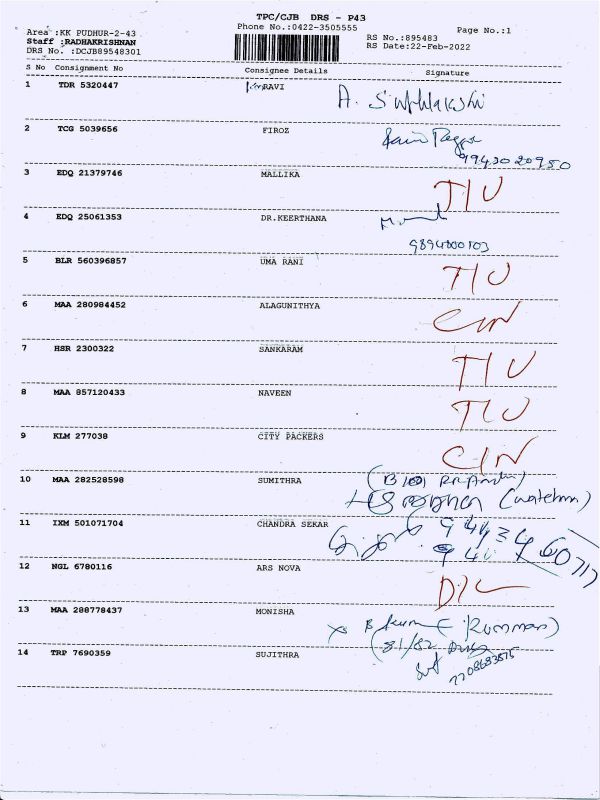 TPC/CJB DRS - P43
Area :KK PUDHUR-2-43 Phone No.:0422-3505555 Page No.:1
Staff :RADHAKRISHNAN RS No.:895483
DRS No. :DCJB89548301 RS Date:22-Feb-2022
S No Consignment No Consignee Details Signature
1 TDR 5320447 RAVI A.
2 TCG 5039656 FIROZ
9943020950
3 EDQ 21379746 MALLIKA T/U
4 EDQ 25061353 DR.KEERTHANA
9894000103
5 BLR 560396857 UMA RANI T/U
6 MAA 280984452 ALAGUNITHYA C/N
7 HSR 2300322 SANKARAM T/U
8 MAA 857120433 NAVEEN T/U
9 KLM 277038 CITY PACKERS C/N
10 MAA 282528598 SUMITHRA
(watchman)
11 IXM 501071704 CHANDRA SEKAR
12 NGL 6780116 ARS NOVA D/L
13 MAA 288778437 MONISHA
14 TRP 7690359 SUJITHRA